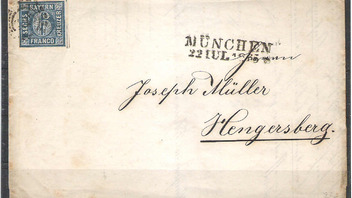 BAYERN
SECHS
KREUZER
6
FRANCO
MÜNCHEN
22 IUL
Joseph Müller
Hengersberg.